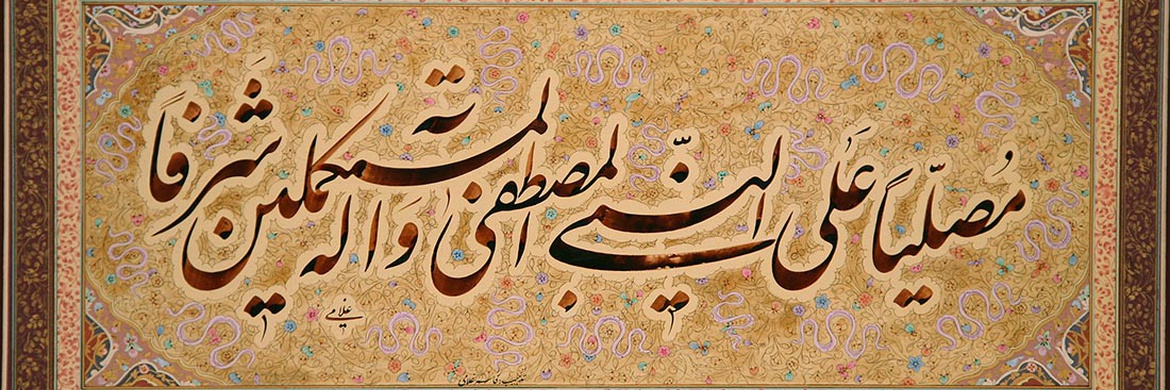 مُصَلّیاً عَلَی النّبی المصطفی وَآله المستکملین شَرَفاً
غلامی